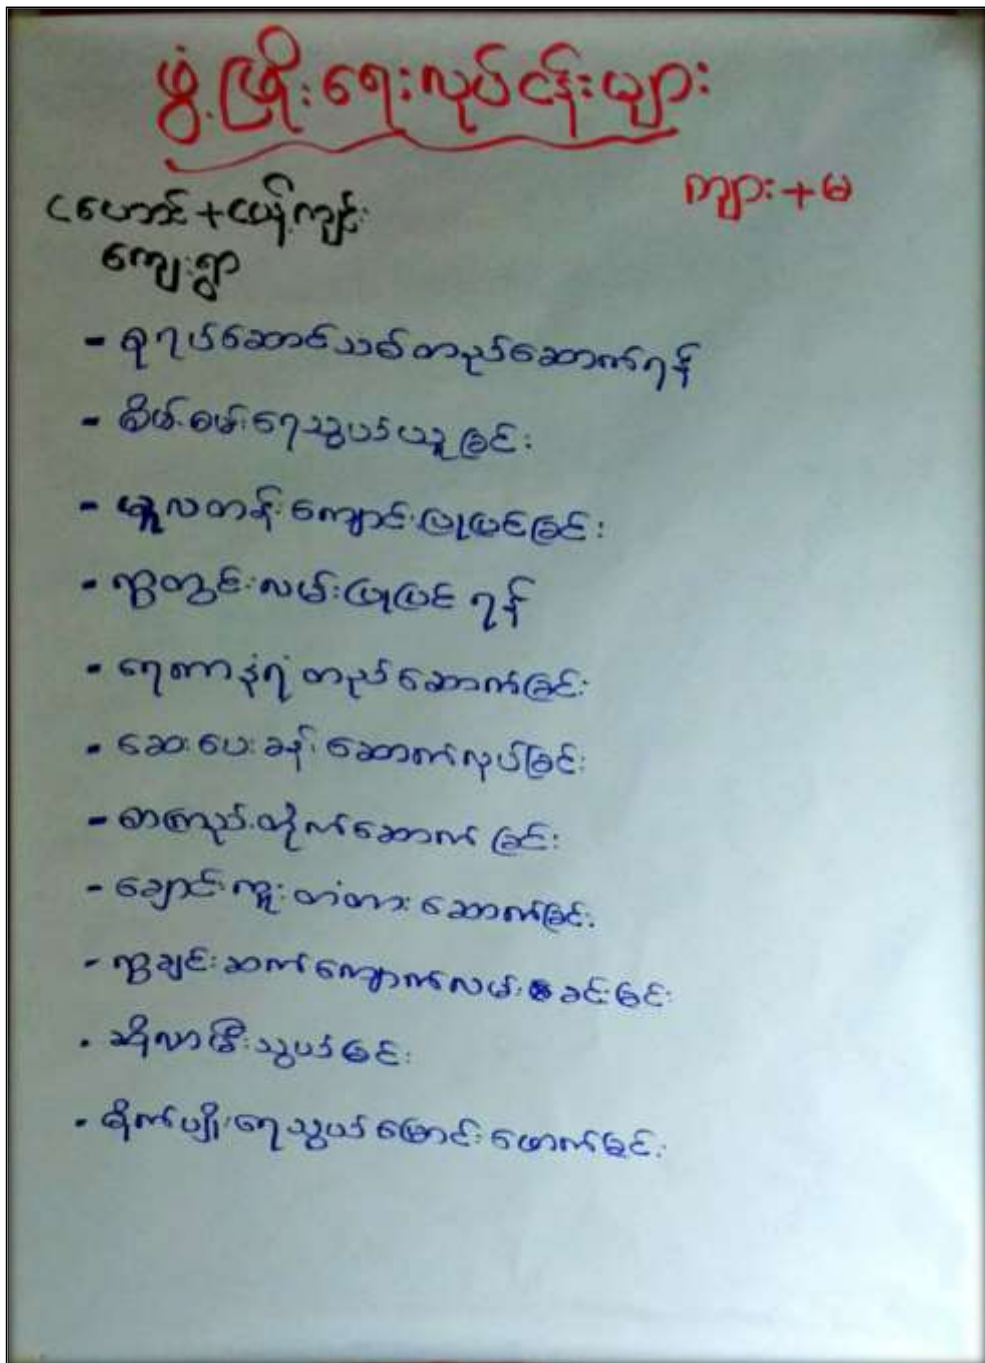 ဖွံ့ဖြိုးရေးလုပ်ငန်းများ
ကျား+မ
ငဟောင်း+ငပိန်ကျင်း
ကျေးရွာ
- စုရပ်ဆောင်သစ်တည်ဆောက်ရန်
- စိမ့်စမ်းရေသွယ်ယူခြင်း
- မူလတန်းကျောင်းပြုပြင်ခြင်း
- ရွာတွင်းလမ်းပြုပြင်ရန်
- ရေတာနံရံတည်ဆောက်ခြင်း
- ဆေးပေးခန်းဆောက်လုပ်ခြင်း
- စာကြည့်တိုက်ဆောက်ခြင်း
- ချောင်းကူးတံတားဆောက်ခြင်း
- ရွာချင်းဆက်ကျောက်လမ်းခင်းခြင်း
- ဆိုလာမီးသွယ်ခြင်း
- စိုက်ပျိုးရေသွယ်မြောင်းဖောက်ခြင်း